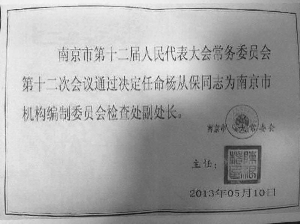 南京市第十二届人民代表大会常务委员会
第十二次会议通过决定任命杨从保同志为南京市
机构编制委员会检查处副处长。
南京市
委会
主任:
2013年05月10日